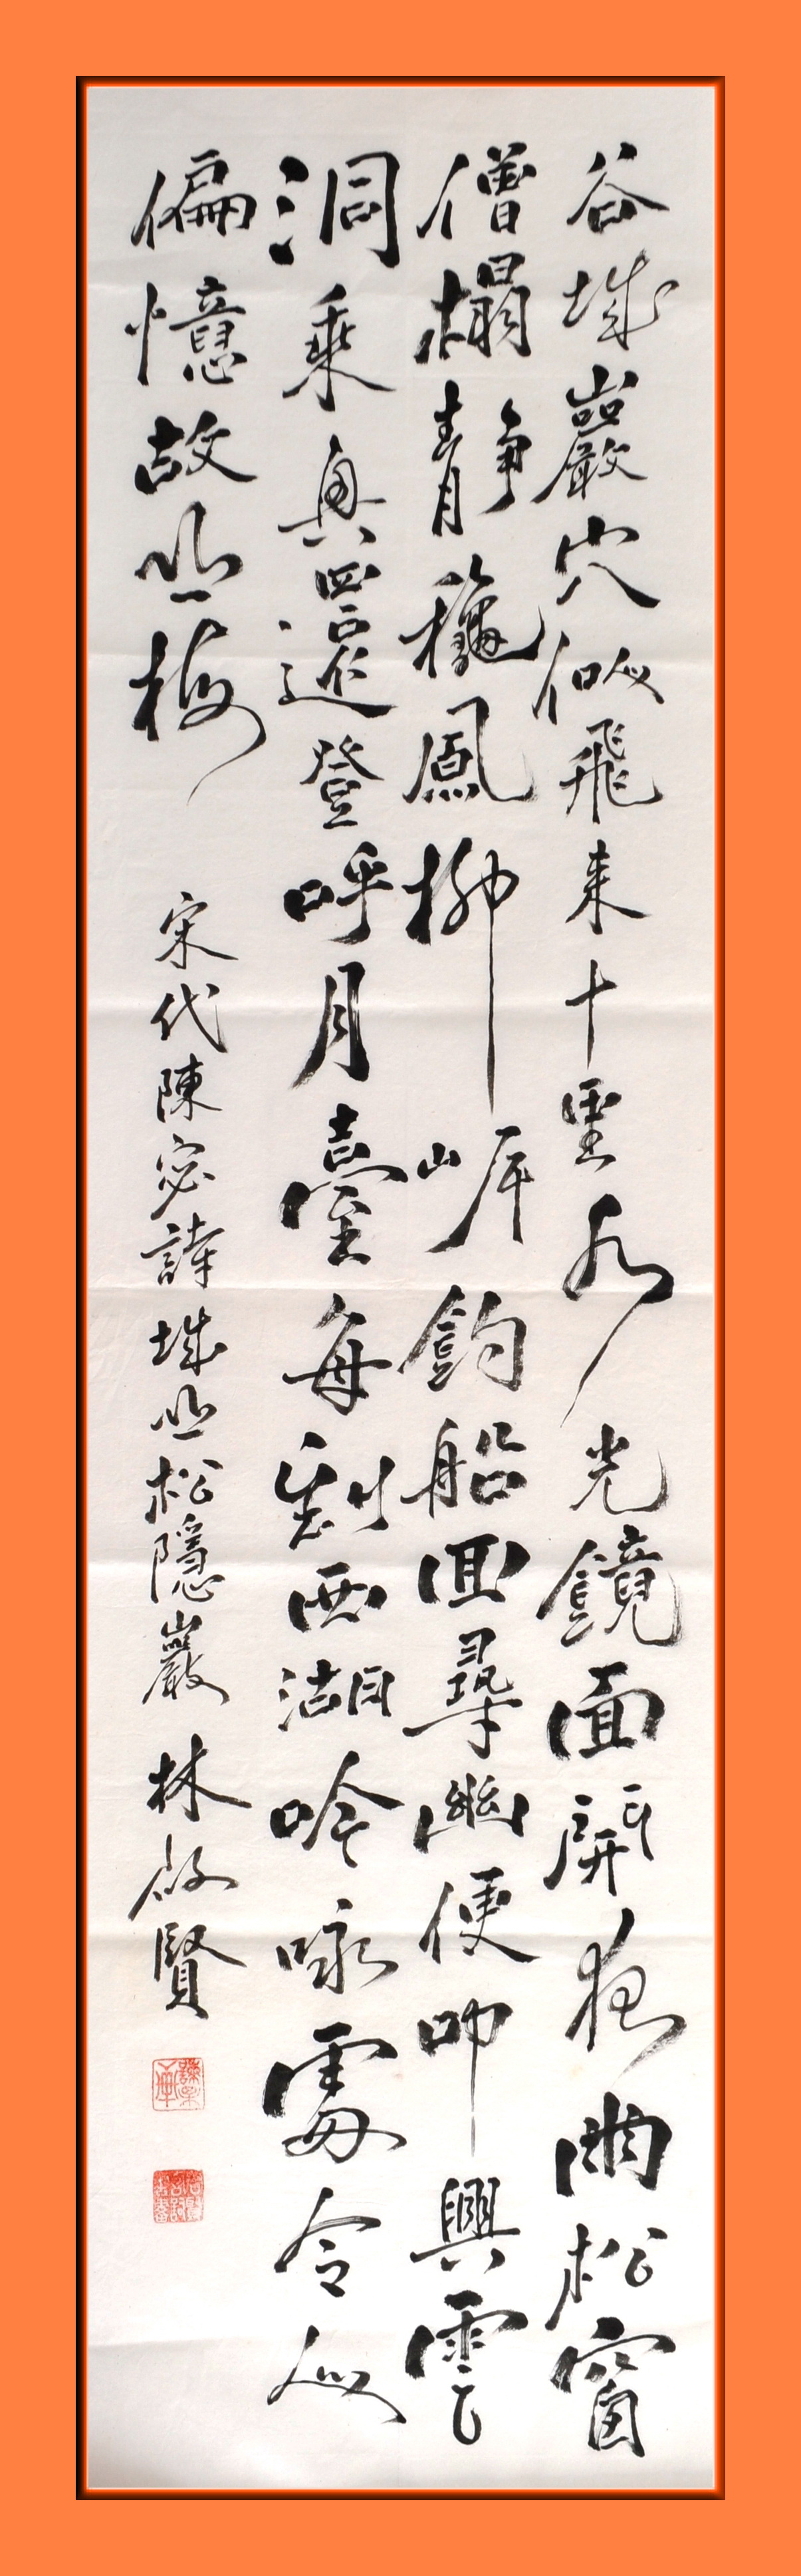 谷城巖穴似飛來十里水光鏡面開夜雨松窗
僧榻靜穐風柳岸釣船回尋幽便叩興雲
洞乘興還登呼月臺每到西湖吟咏處令人
偏憶故山梅
宋代陳宓詩城山松隱巖 林啟賢